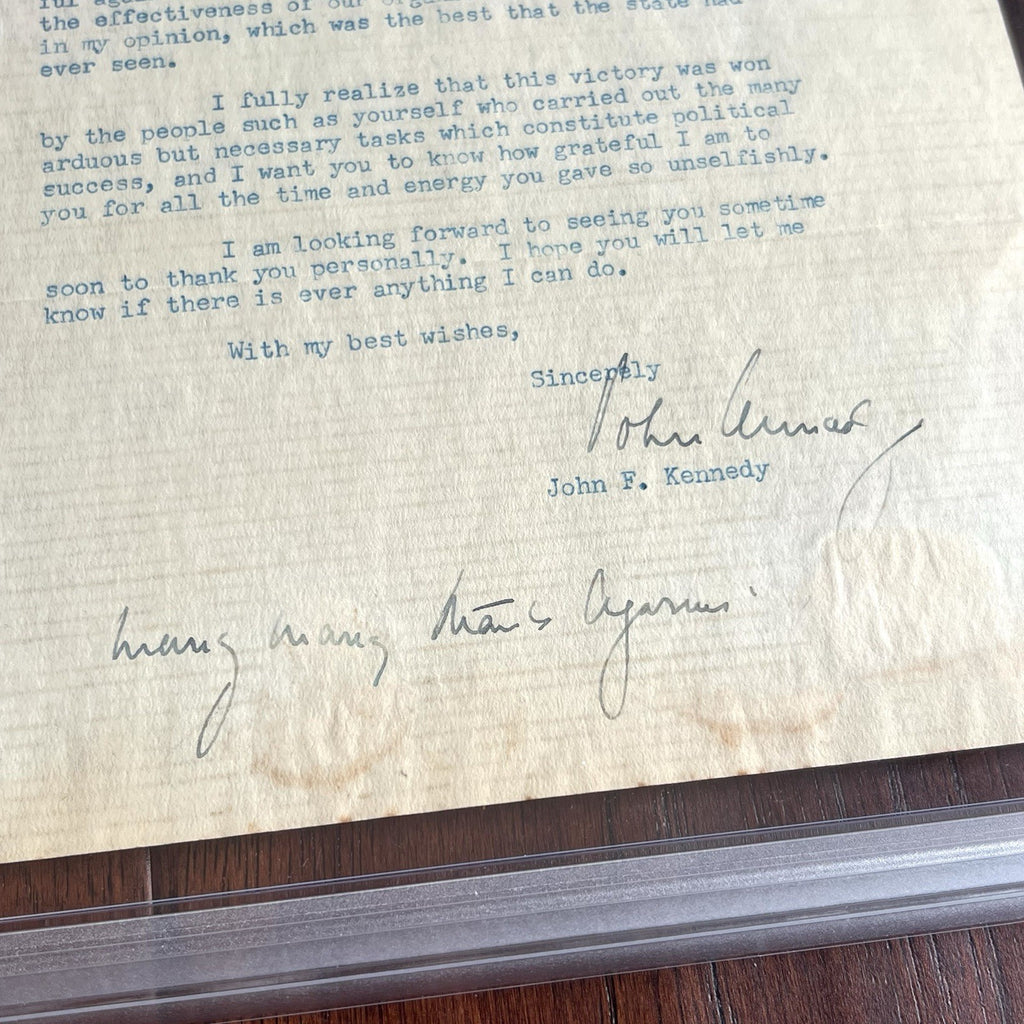 the effectiveness of our
in my opinion, which was the best that the state had
ever seen.
I fully realize that this victory was won
by the people such as yourself who carried out the many
arduous but necessary tasks which constitute political
success, and I want you to know how grateful I am to
you for all the time and energy you gave so unselfishly.
I am looking forward to seeing you sometime
soon to thank you personally. I hope you will let me
know if there is ever anything I can do.
With my best wishes,
Sincerely
John Kennedy
John F. Kennedy
many many thanks again